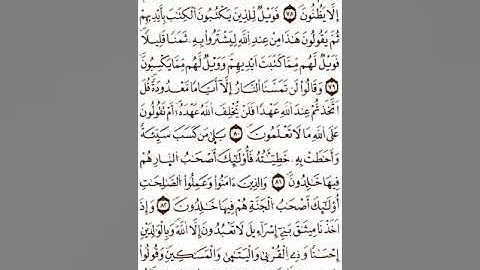 إِلَّا يَظُنُّونَ ٧٨ فَوَيْلٌ لِّلَّذِينَ يَكْتُبُونَ ٱلْكِتَٰبَ بِأَيْدِيهِمْ
ثُمَّ يَقُولُونَ هَٰذَا مِنْ عِندِ ٱللَّهِ لِيَشْتَرُوا۟ بِهِۦ ثَمَنًا قَلِيلًا
فَوَيْلٌ لَّهُم مِّمَّا كَتَبَتْ أَيْدِيهِمْ وَوَيْلٌ لَّهُم مِّمَّا يَكْسِبُونَ
٧٩ وَقَالُوا۟ لَن تَمَسَّنَا ٱلنَّارُ إِلَّآ أَيَّامًا مَّعْدُودَةً قُلْ
أَتَّخَذتُّمْ عِندَ ٱللَّهِ عَهْدًا فَلَن يُخْلِفَ ٱللَّهُ عَهْدَهُۥٓ أَمْ تَقُولُونَ
عَلَى ٱللَّهِ مَا لَا تَعْلَمُونَ ٨٠ بَلَىٰ مَن كَسَبَ سَيِّئَةً
وَأَحَٰطَتْ بِهِۦ خَطِيٓـَٔتُهُۥ فَأُو۟لَٰٓئِكَ أَصْحَٰبُ ٱلنَّارِ هُمْ
فِيهَا خَٰلِدُونَ ٨١ وَٱلَّذِينَ ءَامَنُوا۟ وَعَمِلُوا۟ ٱلصَّٰلِحَٰتِ
أُو۟لَٰٓئِكَ أَصْحَٰبُ ٱلْجَنَّةِ هُمْ فِيهَا خَٰلِدُونَ ٨٢ وَإِذْ
أَخَذْنَا مِيثَٰقَ بَنِىٓ إِسْرَٰٓءِيلَ لَا تَعْبُدُونَ إِلَّا ٱللَّهَ وَبِٱلْوَٰلِدَيْنِ
إِحْسَانًا وَذِى ٱلْقُرْبَىٰ وَٱلْيَتَٰمَىٰ وَٱلْمَسَٰكِينِ وَقُولُوا۟